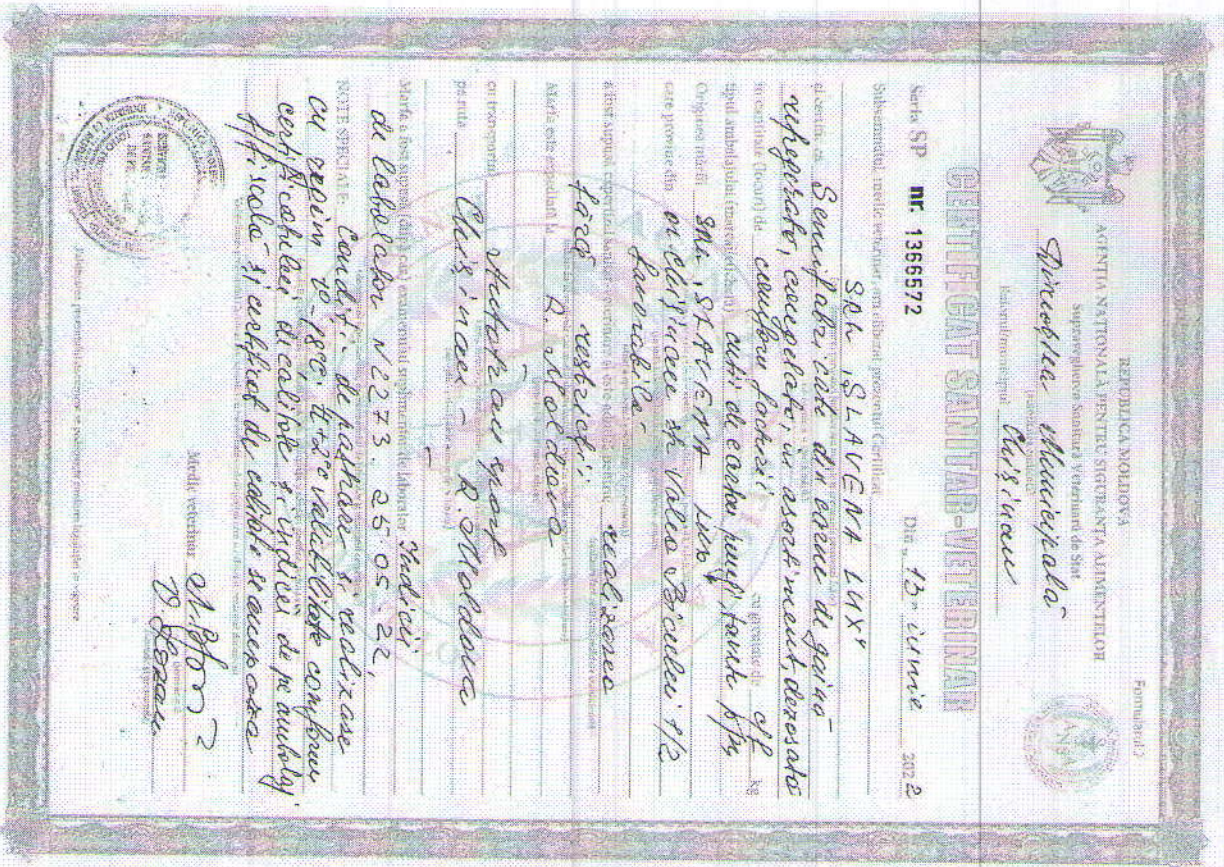 Formularul 2
REPUBLICA MOLDOVA
AGENȚIA NAȚIONALĂ PENTRU SIGURANȚA ALIMENTELOR
Supraveghere Sanitară Veterinară de Stat
Direcția Municipală
Raionul/municipiul Chișinău
CERTIFICAT SANITAR-VETERINAR
Seria SP nr. 1366572 Din „13" iunie 2022
Subsemnatul, medic veterinar, am eliberat prezentul Certificat
SRL „SLAVENA LUX"
și certific că Semifabricate din carne de găină
refrigerată, congelată, în asortiment, dezosată
în cantitate (locuri) de conform facturii cu greutate de kg
tipul ambalajului (marca, eticheta) cutii de carton
Originea mărfii SRL „SLAVENA LUX"
care provine din m. Chișinău str. Valea Bîcului 1/2
favorabilă
a fost supusă expertizei sanitar-veterinare și este admisă pentru realizarea
fără restricții
Marfa este expediată la R. Moldova
cu transportul Autotransport
pe ruta Chișinău - R. Moldova
Marfa a fost supusă (din care) examenului suplimentar de laborator Indicii
de laborator N 2273. 25.05.22.
NOTE SPECIALE: Condiții de păstrare și realizare
cu regim t°-18°C; t+2° valabilitate conform
certificatului de calitate și indicii de pe ambalaj
Medic veterinar